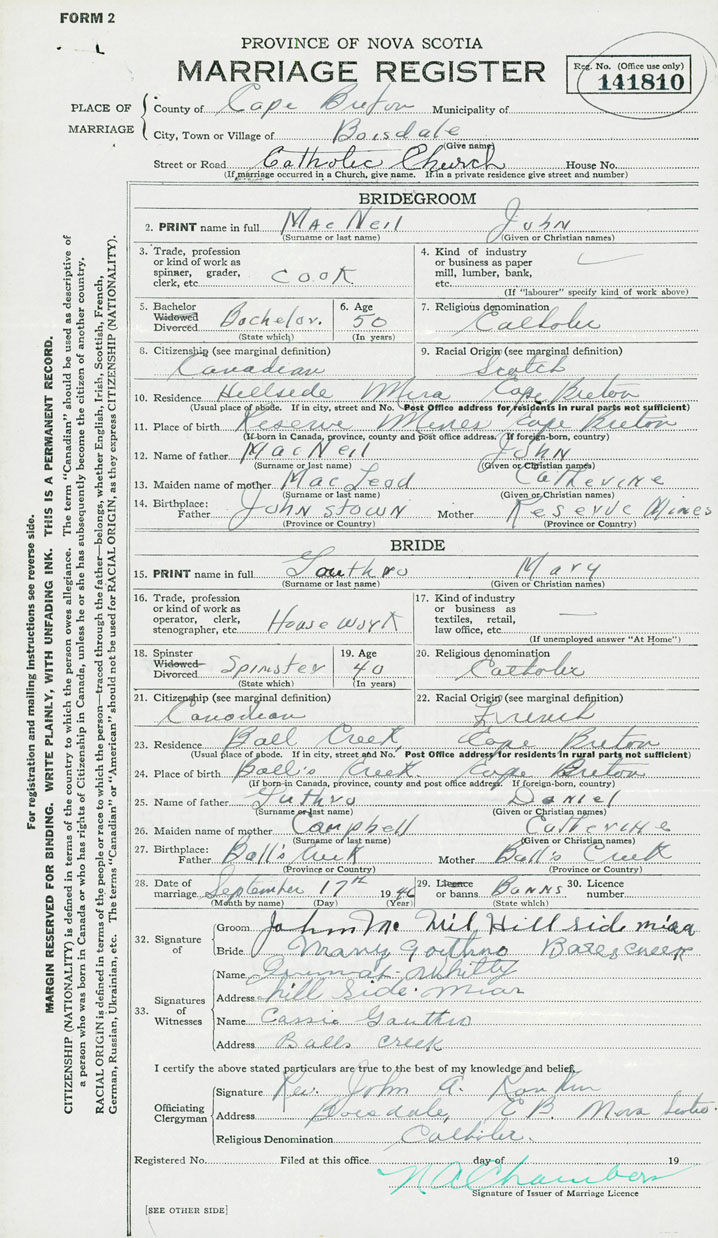 FORM 2
PROVINCE OF NOVA SCOTIA
MARRIAGE REGISTER
Reg. No. (Office use only)
141810
PLACE OF MARRIAGE
County of Cape Breton Municipality of
City, Town or Village of Boisdale
(Give name)
Street or Road Catholic Church House No.
(If marriage occurred in a Church, give name. If in a private residence give street and number)
BRIDEGROOM
2. PRINT name in full MacNeil John
(Surname or last name) (Given or Christian names)
3. Trade, profession or kind of work as spinner, grader, clerk, etc. COOK
4. Kind of industry or business as paper mill, lumber, bank, etc.
(If "labourer" specify kind of work above)
5. Bachelor Widowed Divorced Bachelor.
(State which)
6. Age 50
(In years)
7. Religious denomination Catholic
8. Citizenship (see marginal definition) Canadian
9. Racial Origin (see marginal definition) Scotch
10. Residence Hillside Mira Cape Breton
(Usual place of abode. If in city, street and No. Post Office address for residents in rural parts not sufficient)
11. Place of birth Reserve Mines Cape Breton
(If born in Canada, province, county and post office address. If foreign-born, country)
12. Name of father MacNeil John
(Surname or last name) (Given or Christian names)
13. Maiden name of mother MacLead Catherine
(Surname or last name) (Given or Christian names)
14. Birthplace: Father Johnstown Mother Reserve Mines
(Province or Country) (Province or Country)
BRIDE
15. PRINT name in full Gouthro Mary
(Surname or last name) (Given or Christian names)
16. Trade, profession or kind of work as operator, clerk, stenographer, etc. House work
17. Kind of industry or business as textiles, retail, law office, etc. —
(If unemployed answer "At Home")
18. Spinster Widowed Divorced Spinster
(State which)
19. Age 40
(In years)
20. Religious denomination Catholic
21. Citizenship (see marginal definition) Canadian
22. Racial Origin (see marginal definition) French
23. Residence Ball Creek, Cape Breton
(Usual place of abode. If in city, street and No. Post Office address for residents in rural parts not sufficient)
24. Place of birth Ball's Creek Cape Breton
(If born in Canada, province, county and post office address. If foreign-born, country)
25. Name of father Guthro Daniel
(Surname or last name) (Given or Christian names)
26. Maiden name of mother Campbell Catherine
(Surname or last name) (Given or Christian names)
27. Birthplace: Father Ball's Creek Mother Ball's Creek
(Province or Country) (Province or Country)
28. Date of marriage September 17th 1946
(Month by name) (Day) (Year)
29. Licence or banns Banns
(State which)
30. Licence number
32. Signature of
Groom John Mc Hill side
Bride Creek
33. Signatures of Witnesses
Name Whitty
Address hill side
Name Cassie
Address Balls creek
I certify the above stated particulars are true to the best of my knowledge and belief.
Officiating Clergyman
Signature Rev. John A. Rankin
Address Boisdale, C.B. Nova Scotia.
Religious Denomination Catholic.
Registered No. Filed at this office day of 19
Chambers
Signature of Issuer of Marriage Licence
[SEE OTHER SIDE]
For registration and mailing instructions see reverse side.
MARGIN RESERVED FOR BINDING. WRITE PLAINLY, WITH UNFADING INK. THIS IS A PERMANENT RECORD.
CITIZENSHIP (NATIONALITY) is defined in terms of the country to which the person owes allegiance. The term "Canadian" should be used as descriptive of
a person who was born in Canada or who has rights of Citizenship in Canada, unless he or she has subsequently become the citizen of another country.
RACIAL ORIGIN is defined in terms of the people or race to which the person—traced through the father—belongs, whether English, Irish, Scottish, French,
German, Russian, Ukrainian, etc. The terms "Canadian" or "American" should not be used for RACIAL ORIGIN, as they express CITIZENSHIP (NATIONALITY).